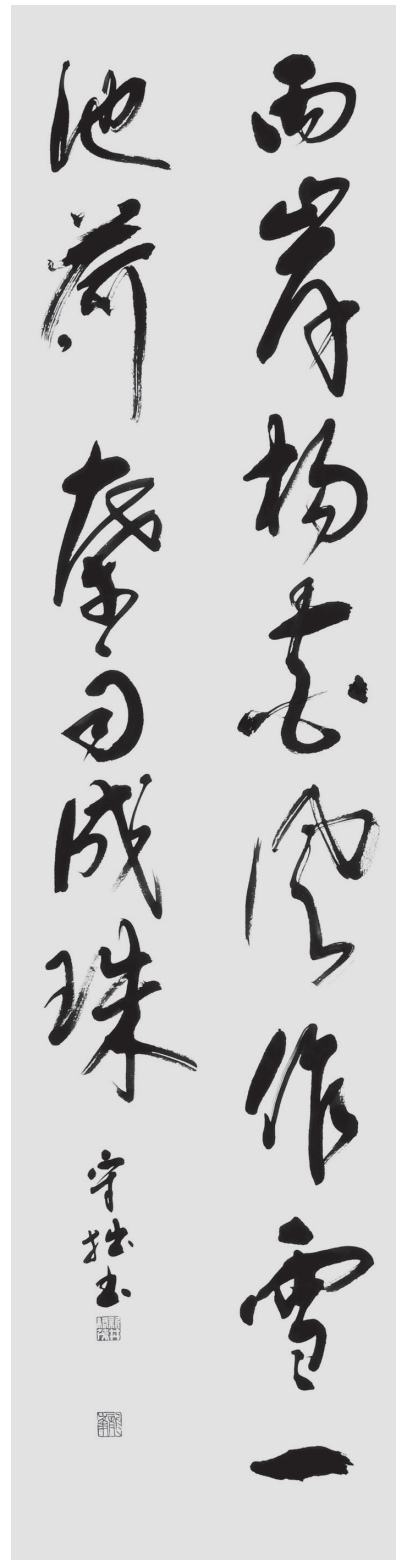 両岸楊花風作雪一
池荷葉雨成珠
守拙書